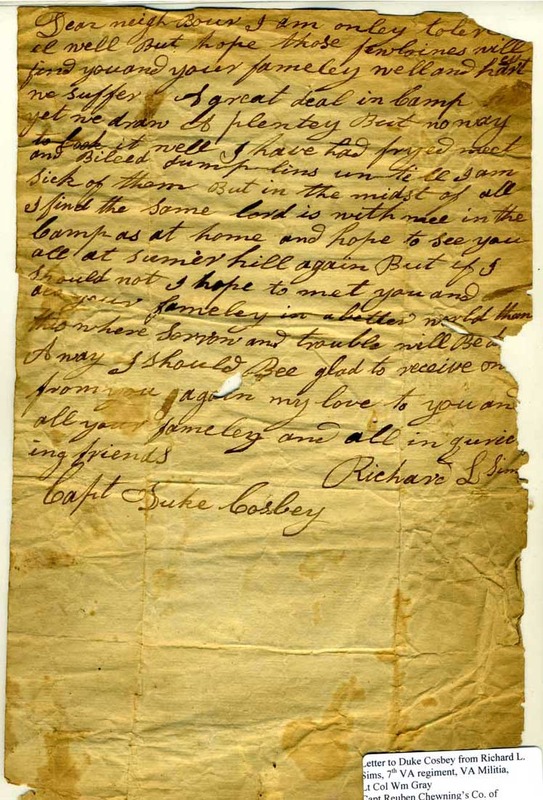 Dear neighbour I am onley toler
il well But hope those fewloines will
find you and your fameley well and hart
we suffer A great deal in Camp
yet we draw A plentey But no way
to Cook it well I have had fryed meet
and Bileed dump lins un till I am
sick of them But in the midst of all
I find the same lord is with mee in the
Camp as at home and hope to see you
all at sumer hill again But if I
should not I hope to met you and
all your fameley in a better world than
this where sorrow and trouble will Bee d
Away I should Bee glad to receive on
from you again my love to you an
all your fameley and all in quric
ing friends
Richard L Sim
Capt Duke Cosbey
Letter to Duke Cosbey from Richard L.
Sims, 7th VA regiment, VA Militia,
Lt Col Wm Gray
Capt Reuben Chewning's Co. of